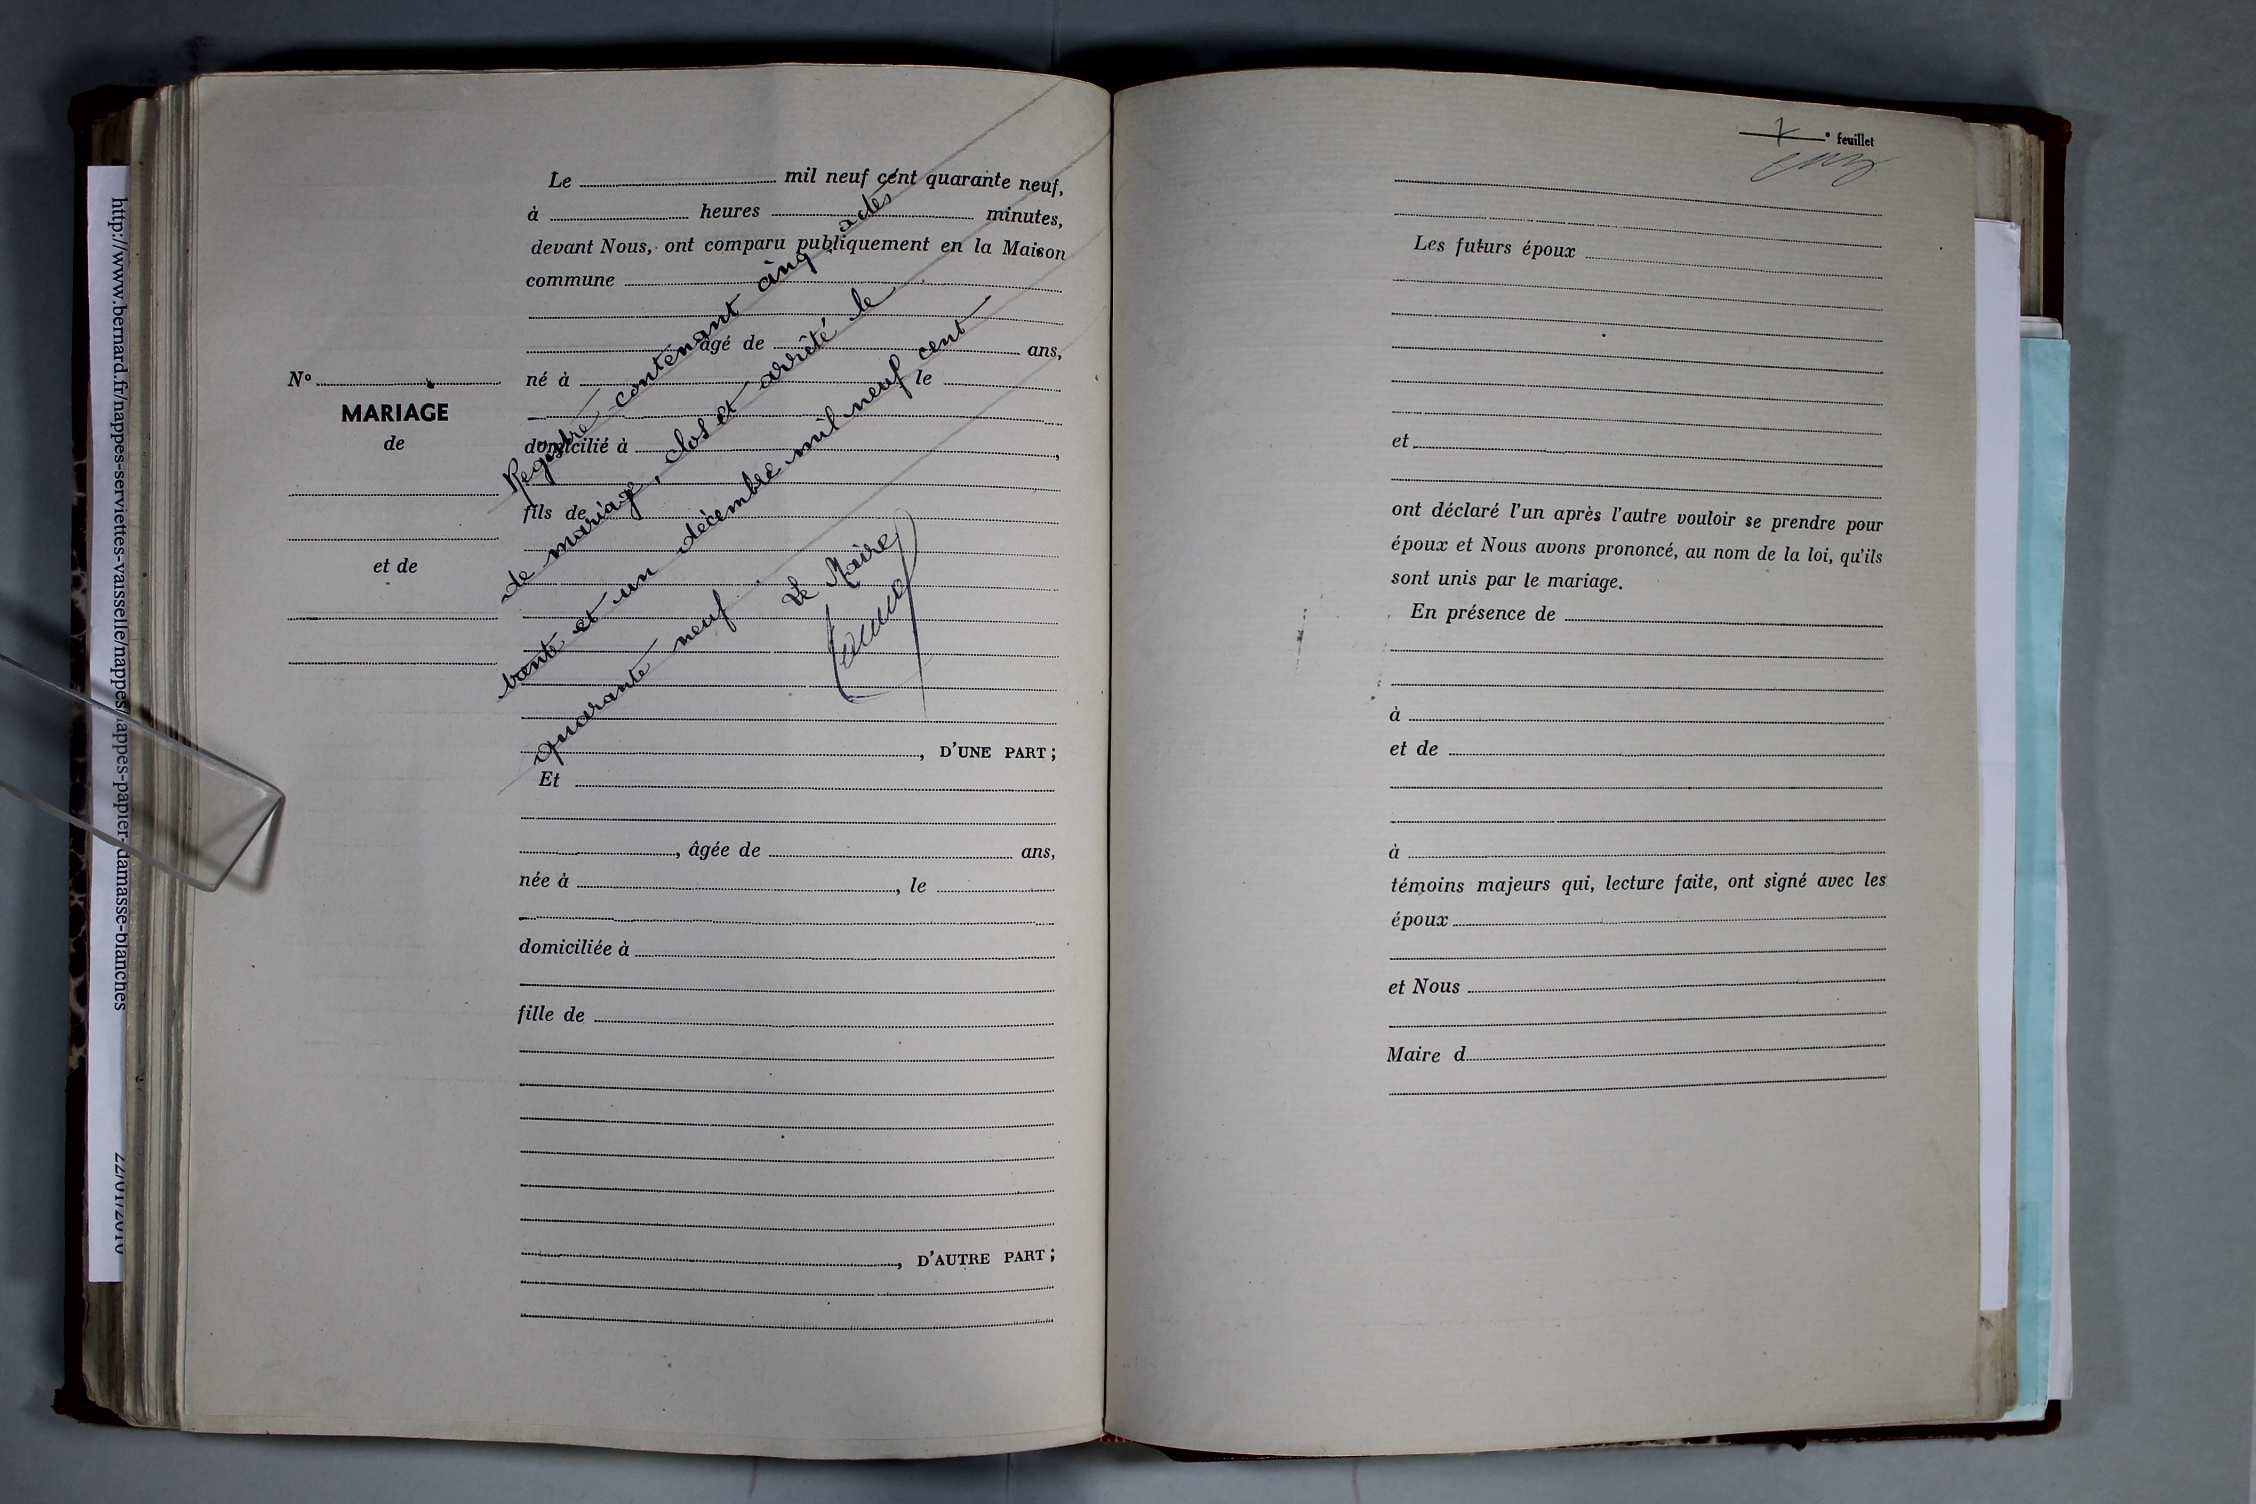 Le mil neuf cent quarante neuf,
à heures minutes,
devant Nous, ont comparu publiquement en la Maison
commune
âgé de ans,
né à le
domicilié à ,
fils de
, D'UNE PART ;
Et
, âgée de ans,
née à , le
domiciliée à
fille de
, D'AUTRE PART ;
N°
MARIAGE
de
et de
Registre contenant cinq actes
de mariage, clos et arrêté le
trente et un décembre mil neuf cent
quarante neuf
Le Maire
http://www.bernard.fr/nappes-serviettes-vaisselle/nappes/nappes-papier-damasse-blanches
22/01/2010
7 ° feuillet
Les futurs époux
et
ont déclaré l'un après l'autre vouloir se prendre pour
époux et Nous avons prononcé, au nom de la loi, qu'ils
sont unis par le mariage.
En présence de
à
et de
à
témoins majeurs qui, lecture faite, ont signé avec les
époux
et Nous
Maire d